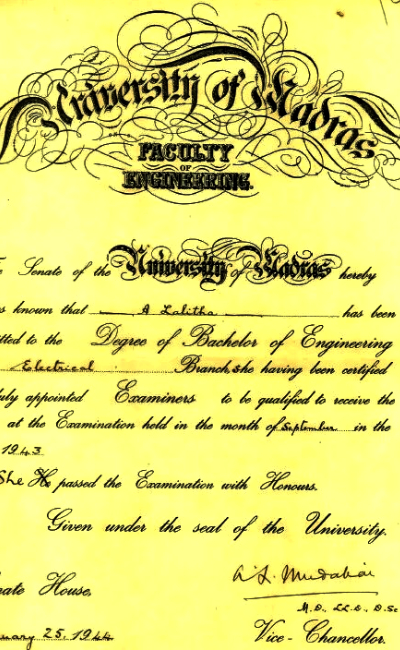 University of Madras
FACULTY
OF
ENGINEERING.
Senate of the University of Madras hereby
s known that A Lalitha has been
tted to the Degree of Bachelor of Engineering
Electrical Branch, she having been certified
uly appointed Examiners to be qualified to receive the
at the Examination held in the month of September in the
1943
She He passed the Examination with Honours.
Given under the seal of the University.
nate House,
A. L. Mudaliar
M.D., LL.D., D.Sc
uary 25, 1944
Vice-Chancellor.